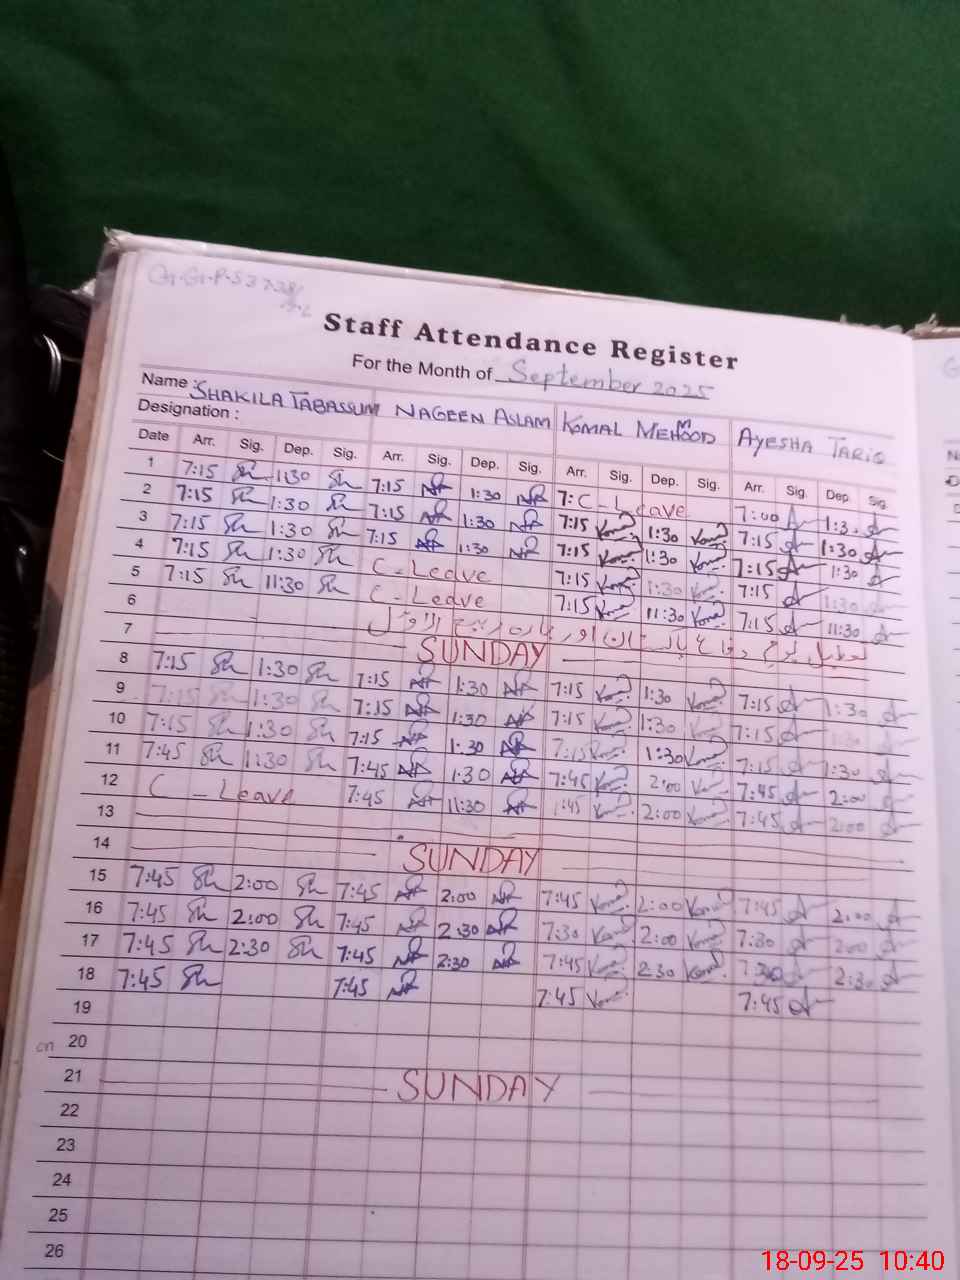 G.G.P.S 37-38/
Staff Attendance Register
For the Month of September 2025
Name : SHAKILA TABASSUM NAGEEN ASLAM KOMAL MEHMOOD AYESHA TARIQ
Designation :
Date Arr. Sig. Dep. Sig. Arr. Sig. Dep. Sig. Arr. Sig. Dep. Sig. Arr. Sig. Dep. Sig.
1 7:15 Sh 1:30 Sh 7:15 1:30 7: C - Leave 7:00 1:3
2 7:15 Sh 1:30 Sh 7:15 1:30 7:15 1:30 7:15 1:30
3 7:15 Sh 1:30 Sh 7:15 1:30 7:15 1:30 7:15 1:30
4 7:15 Sh 1:30 Sh C - Leave 7:15 1:30 7:15 1:30
5 7:15 Sh 11:30 Sh C - Leave 7:15 11:30 7:15 11:30
6 تعطیل
7 SUNDAY
8 7:15 Sh 1:30 Sh 7:15 1:30 7:15 1:30 7:15 1:30
9 7:15 Sh 1:30 Sh 7:15 1:30 7:15 1:30 7:15 1:30
10 7:15 Sh 1:30 Sh 7:15 1:30 7:15 1:30 7:15 1:30
11 7:45 Sh 1:30 Sh 7:45 1:30 7:45 2:00 7:45 2:00
12 C - Leave 7:45 11:30 7:45 2:00 7:45 2:00
13
14 SUNDAY
15 7:45 Sh 2:00 Sh 7:45 2:00 7:45 2:00 7:45 2:00
16 7:45 Sh 2:00 Sh 7:45 2:30 7:30 2:00 7:30 2:00
17 7:45 Sh 2:30 Sh 7:45 2:30 7:45 2:30 7:30 2:30
18 7:45 Sh 7:45 7:45 7:45
19
cn 20
21 SUNDAY
22
23
24
25
26
18-09-25 10:40